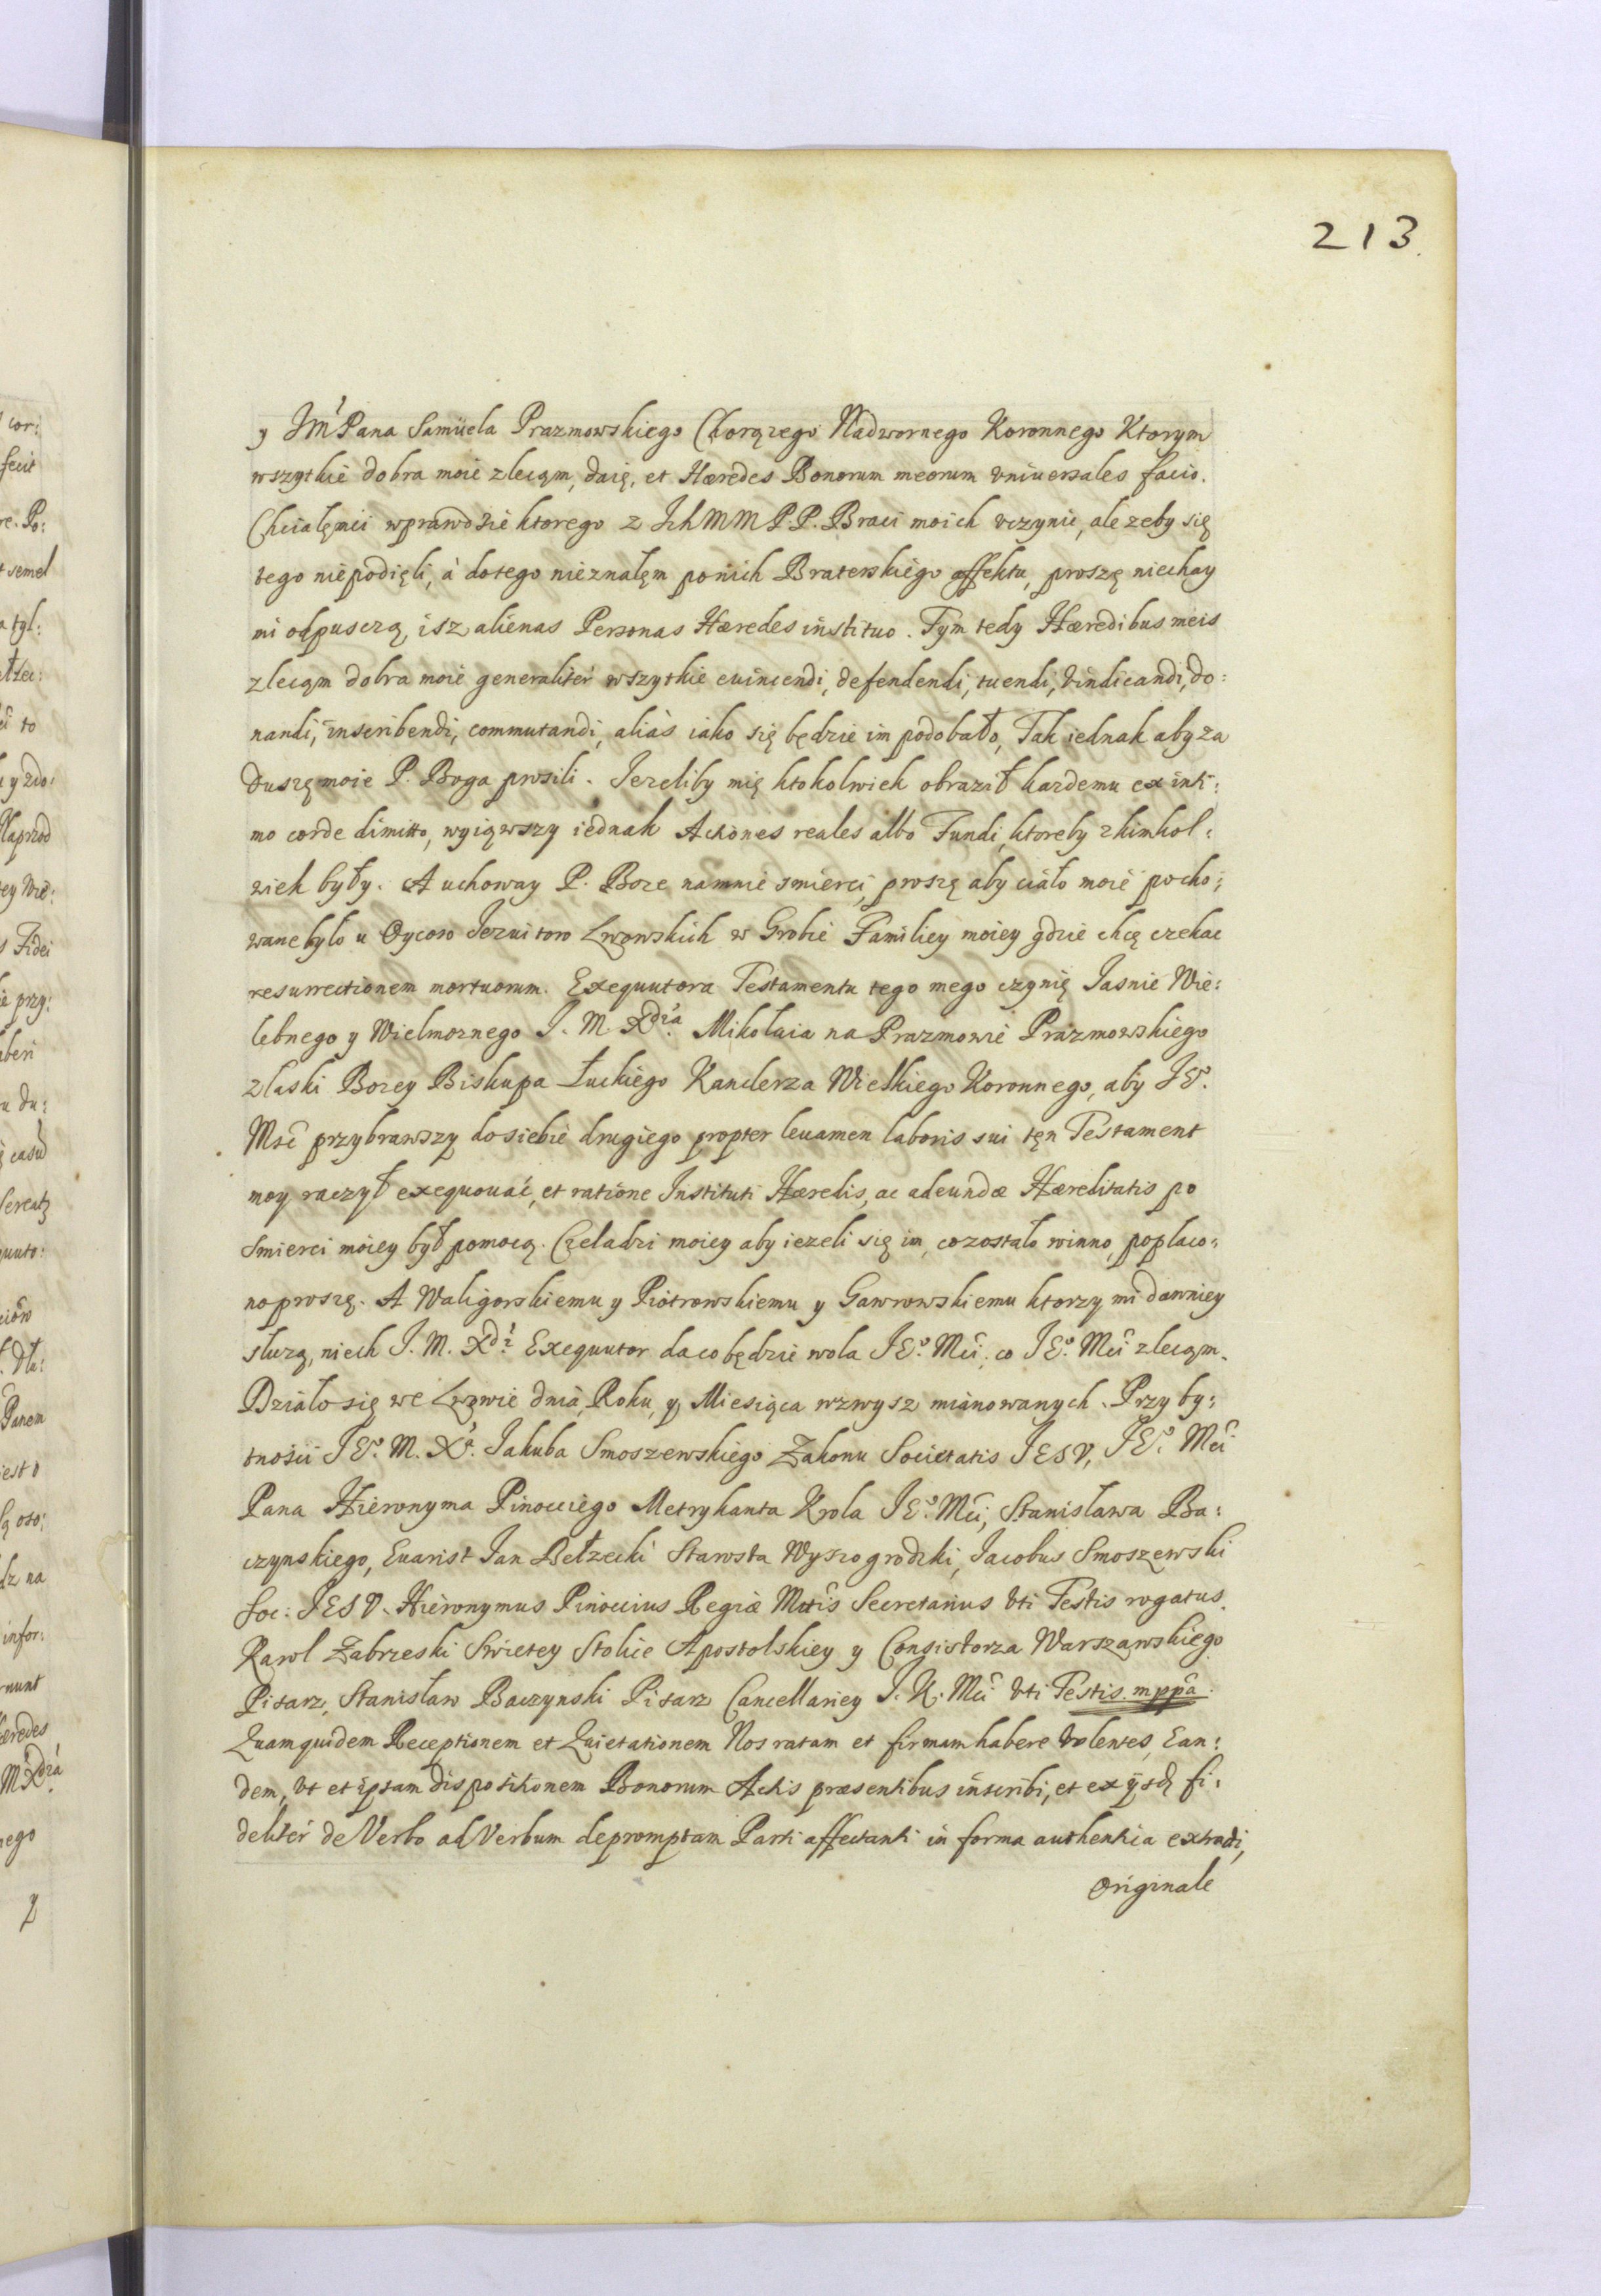 213.
y Jm̃ Pana Samuela Prazmowskiego Chorązego Nadwornego Koronnego Ktorym
wszytkie dobra moie zlecąm, daię, et Hæredes Bonorum meorum vniuersales facio.
Chciałęmci wprawdzie ktorego z IchMM PP. Braci moich vczynić, ale zeby się
tego niepodięli, à dotego nieznałęm ponich Braterskiego affektu, proszę niechay
mi odpuszczą, isz alienas Personas Hæredes instituo. Tym tedy Hæredibus meis
zlecąm dobra moie generaliter wszytkie euincendi, defendendi, tuendi, vindicandi, do:
nandi, inscribendi, commutandi, aliàs iako się będzie im podobało, Tak iednak aby za
duszę moie P. Boga prosili. Jezeliby mię ktokolwiek obraził kazdemu ex inti:
mo corde dimitto, wyiąwszy iednak Actiones reales albo Fundi, ktoreby zkimkol:
wiek były. A uchoway P. Boze namnie smierci, proszę aby ciało moie pocho:
wane było u Oycow Jezuitow Lwowskich w Grobie Familiey moiey gdzie chcę czekac
resurrectionem mortuorum. Exequutora Testamentu tego mego czynię Jasnie Wie:
lebnego y Wielmoznego J. M. Xdza Mikołaia na Prazmowie Prazmowskiego
zlaski Bozey Biskupa Łuckiego Kanclerza Wielkiego Koronnego, aby JEo.
Mść przybrawszy dosiebie drugiego propter leuamen laboris sui tęn Testament
moy raczył exequować, et ratione Instituti Hæredis, ac adeundæ Hæreditatis po
Smierci moiey był pomocą. Czeladzi moiey aby iezeli się im, cozostało winno, popłaco:
no proszę. A Waligorskiemu y Piotrowskiemu y Gawrowskiemu ktorzy mi dawniey
słuzą, niech J. M. Xdz Exequutor da co będzie wola JEo. Mci, co JEo. Mci zlecąm.
Działo się we Lwowie dnia, Roku, y Miesiąca wzwysz mianowanych. Przy by:
tności JEo. M. Xa. Jakuba Smoszewskiego Zakonu Societatis JESV, JEo. Mci
Pana Hieronyma Pinocciego Metrykanta Krola JEo. Mci, Stanisława Ba:
czynskiego, Euarist Jan Bełzecki Starosta Wyszogrodzki, Jacobus Smoszewski
Soc: JESV. Hieronymus Pinoccius Regiæ Mttis Secretarius vti Testis rogatus.
Karol Zabrzeski Swietey Stolice Apostolskiey y Consistorza Warszawskiego
Pisarz, Stanisław Baczynski Pisarz Cancellariey J. K. Mci vti Testis. mppa.
Quamquidem Receptionem et Quietationem Nos ratam et firmam habere volentes, Ean:
dem, vt et ipsam dispositionem Bonorum Actis præsentibus inscribi, et ex ijsdẽ fi:
deliter de Verbo ad Verbum depromptam Parti affectanti in forma authentica extradi,
originale